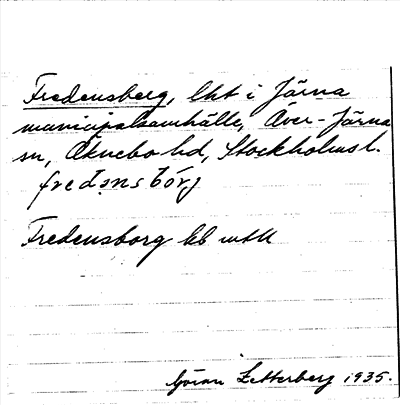 Fredensberg, lht i Järna
municipalsamhälle, Över-Järna
sn, Öknebo hd, Stockholms l.
Fredensborg
Göran Zetterberg 1935.